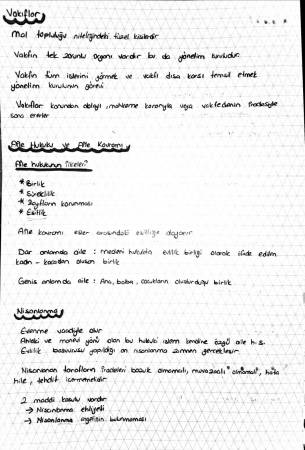 Vakıflar
Mal topluluğu niteliğindeki tüzel kişilerdir
Vakfın tek zorunlu organı vardır bu da yönetim kuruludur.
Vakfın tüm işlerini görmek ve vakfı dışa karşı temsil etmek
yönetim kurulunun görevi
Vakıflar kanundan dolayı, mahkeme kararıyla veya vakfedenin iradesiyle
sona ererler
Aile Hukuku ve Aile Kavramı
Aile hukukunun ilkeleri?
* Birlik
* Süreklilik
* Zayıfların korunması
* Eşitlik
Aile kavramı eşler arasındaki eşitliğe dayanır
Dar anlamda aile : medeni hukukta evlilik birliği olarak ifade edilen
kadın - kocadan oluşan birlik
Geniş anlamda aile : Ana, baba, çocukların oluşturduğu birlik
Nişanlanma
Evlenme vaadiyle olur
Ahlaki ve manevi yönü olan bu hukuki işlem kendine özgü aile h. s.
Evlilik başvurusu yapıldığı an nişanlanma zımnen gerçekleşir
Nişanlanan tarafların iradeleri bozuk olmamalı, muvazaalı olmamalı, hata
hile, tehdit içermemekle
2 maddi koşulu vardır
→ Nişanlanma ehliyeti
→ Nişanlanma engelinin bulunmaması